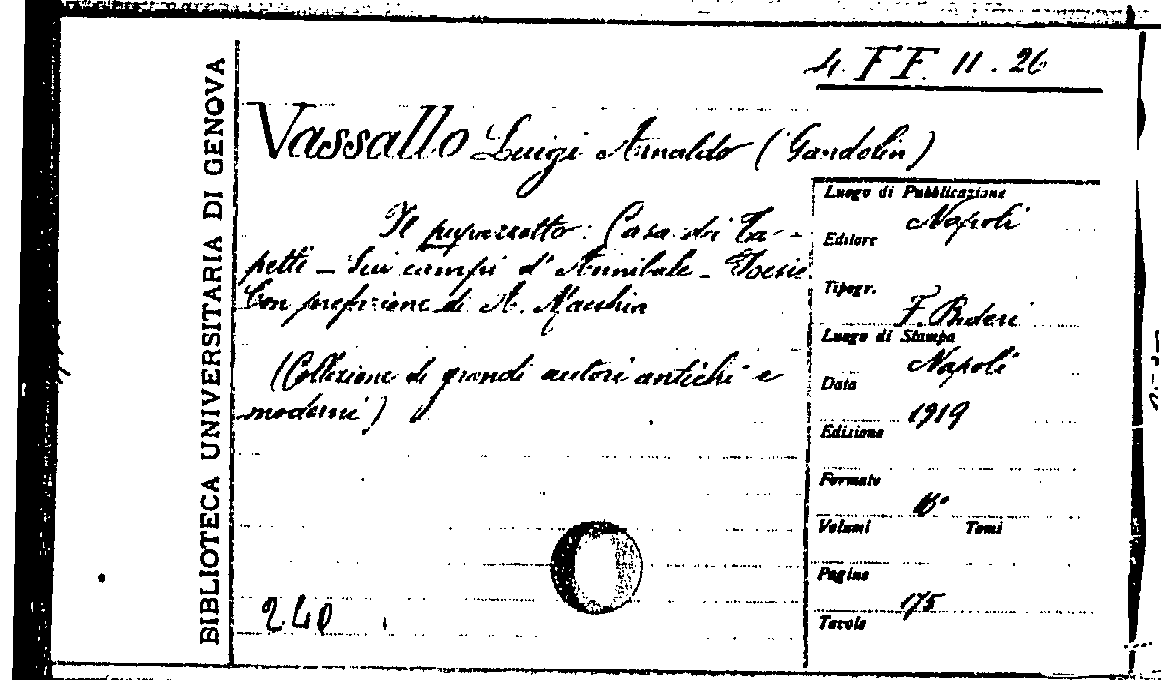 4. FF. 11. 26
BIBLIOTECA UNIVERSITARIA DI GENOVA
Vassallo Luigi Arnaldo (Gandolin)
Il pupazzetto: Casa di Ta-
petti - Sui campi d'Annibale - Poesie
Con prefazione di A. Macchia
(Collezione di grandi autori antichi e
moderni)
240
Luogo di Pubblicazione
Napoli
Editore
Tipogr.
F. Bideri
Luogo di Stampa
Napoli
Data
1919
Edizione
Formato
16°
Volumi Tomi
Pagine
175
Tavole